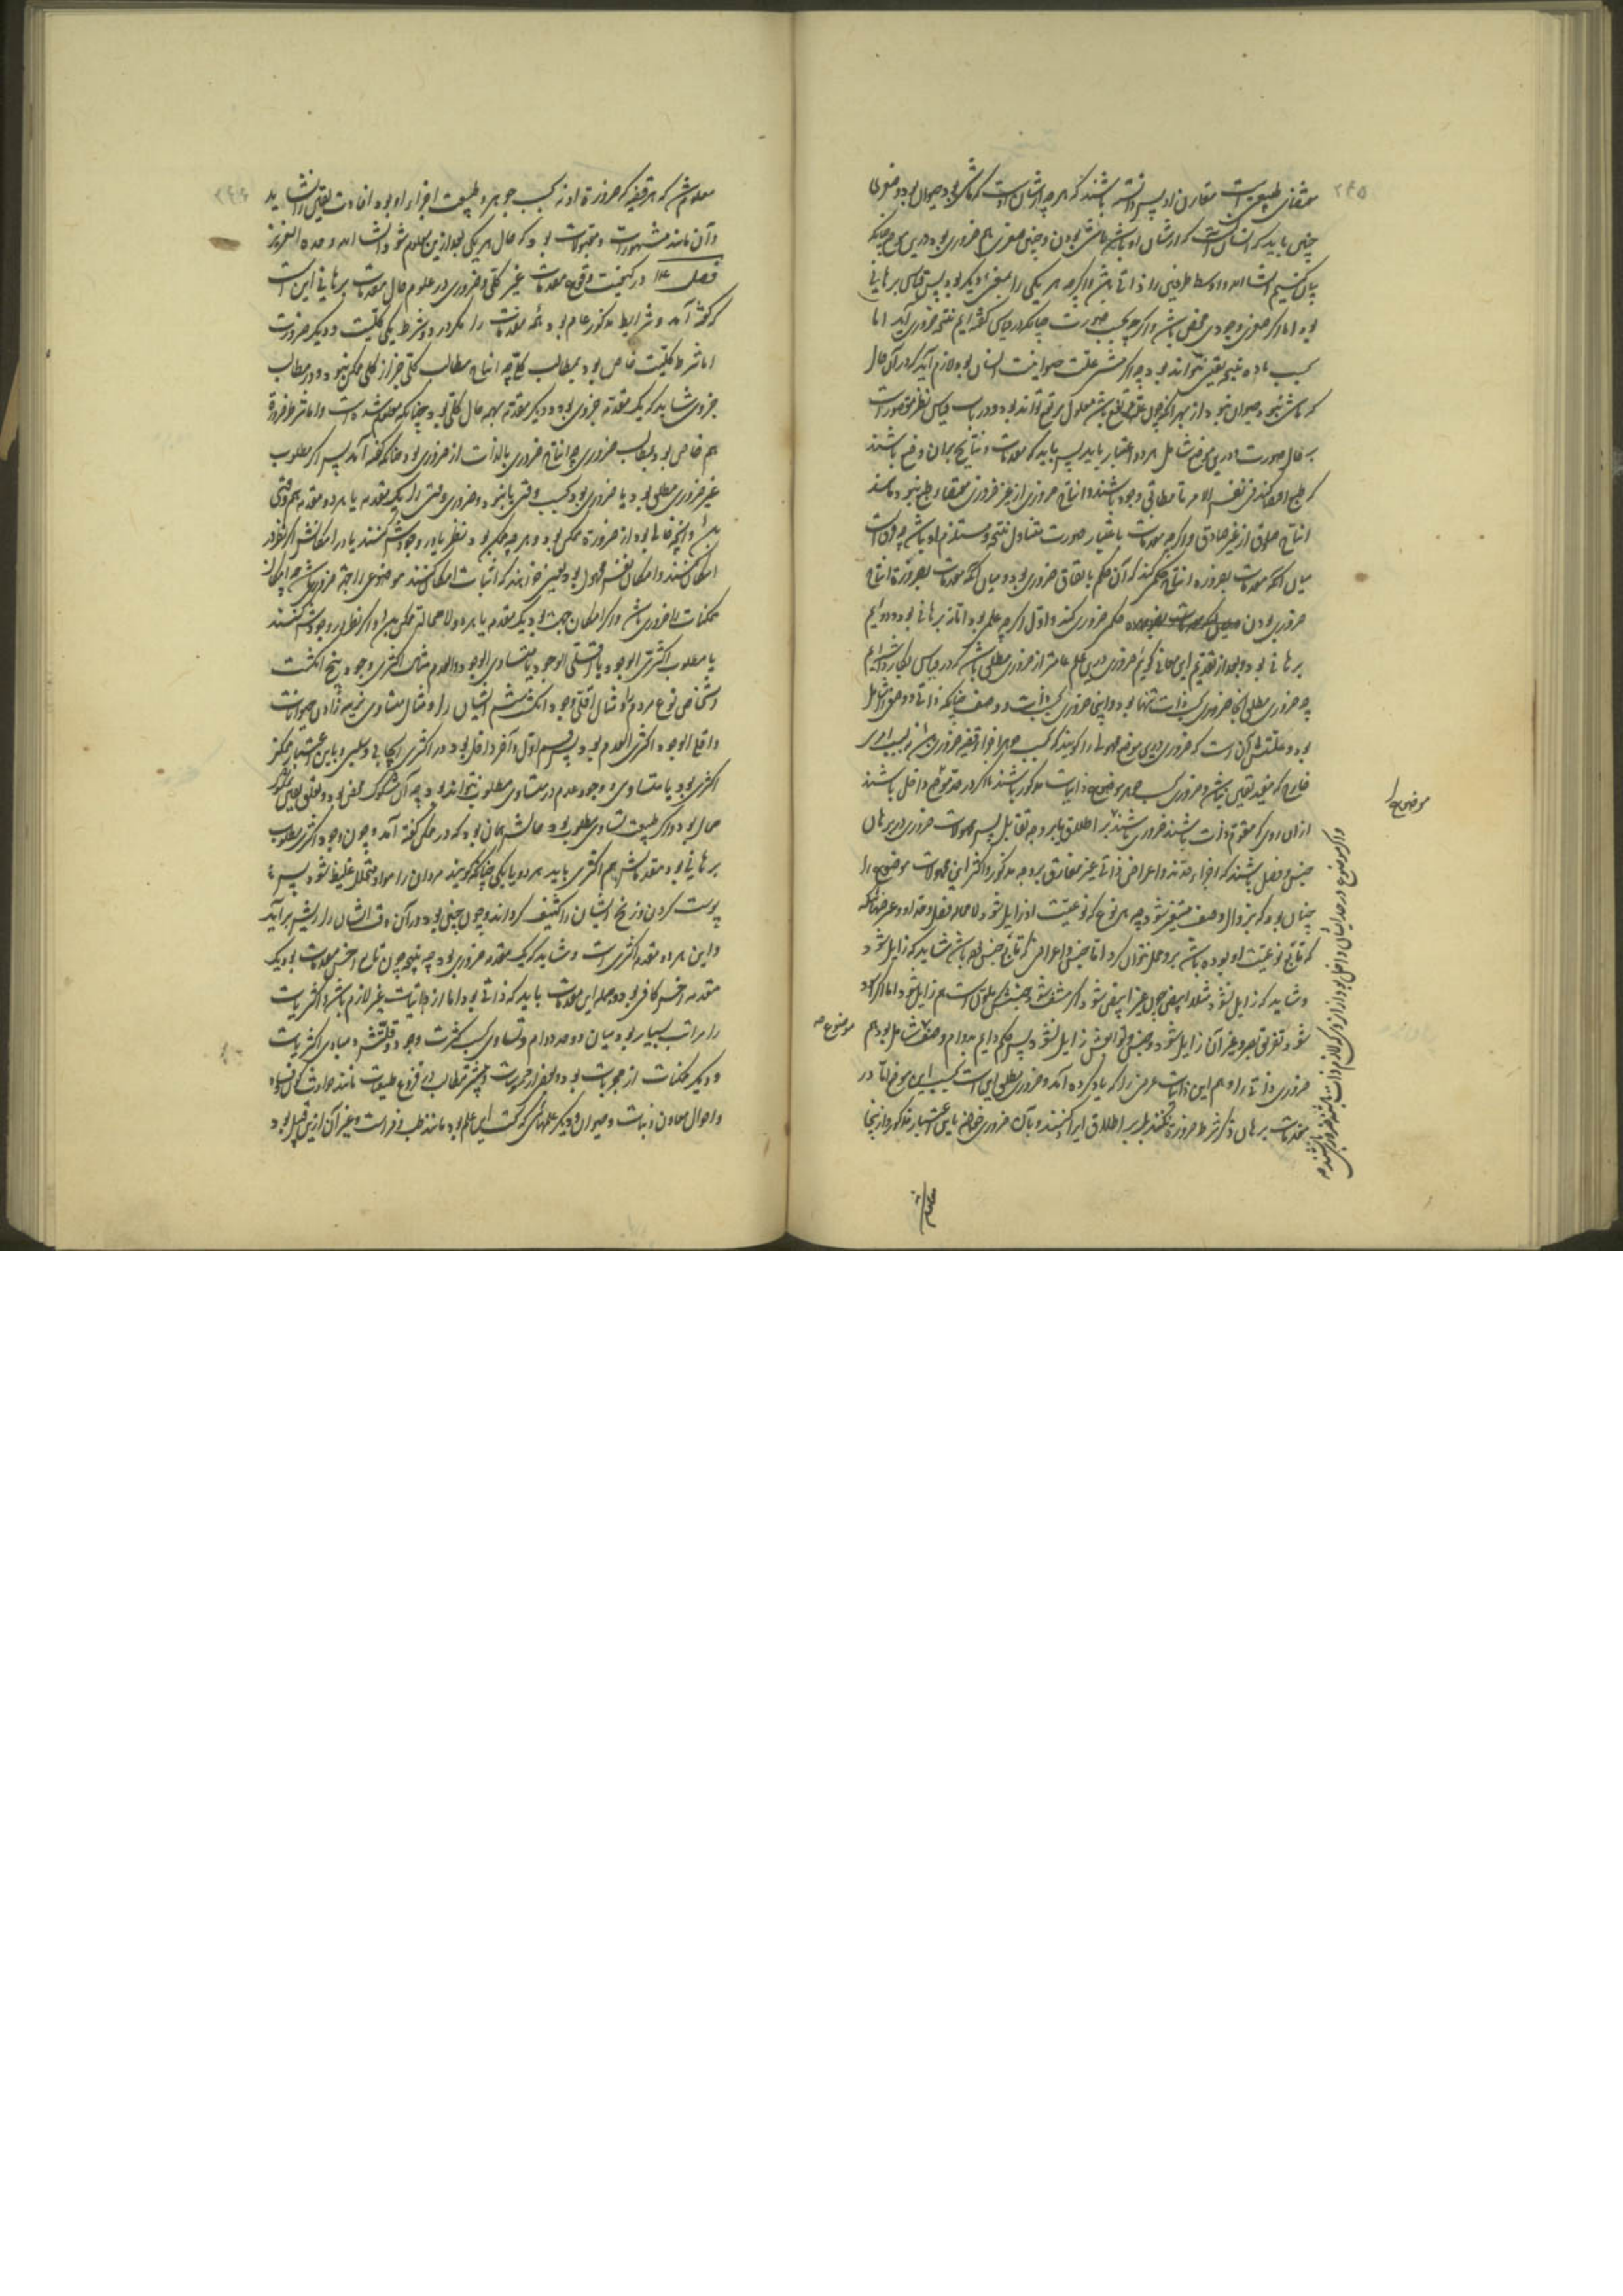 ۲۴۵
مقتضای طبیعت است مقارن او پس دانسته باشند که هر چه از شأن اوست که ماشی بود حیوان بود و صغری
چنین باید که انسان آنست که از شأن او باشد ماشی بودن و چنین صغری هم ضروری بود درین موضع چنانکه
بیان کنیم انشاء الله و اوسط طرفین را ذاتی باشد و اگرچه هر یکی را بمعنی دیگر بود پس قیاس برهانی
بود اما اگر صغری وجودی محض باشد و اگرچه بحسب صورت چنانکه در قیاس گفته‌ایم نتیجه ضروری آید اما
بحسب ماده نتیجه یقینی نتواند بود چه اگر مشی علت حیوانیت انسان بود لازم آید که در آن حال
که ماشی نبود حیوان نبود
بر حال صورت و درین موضع شامل هر دو اعتبار باید پس باید که مقدمات و نتایج برهان
انتاج صادق از غیر صادق و اگرچه مقدمات باعتبار صورت متناول نتیجه و مستلزم او باشد چه فرقست
میان آنکه مقدمات بضرورت انتاج حکمی کند که آن حکم باتفاق ضروری بود و میان آنکه مقدمات بضرورت انتاج
ضروری بودن حکم ضروری کند و اول اگرچه علمی بود اما نه برهانی بود و دوم
برهانی بود و بعد از تقدیم این معانی گوئیم ضروری درین علم عامتر از ضروری مطلق باشد که در قیاس بکار داشته‌ایم
چه ضروری مطلق آنجا ضروری بحسب ذات تنها بود و اینجا ضروری بحسب ذات و وصف چنانکه ذاتی و وصفی را شامل
بود و علتش آن است که ضروری درین موضع محمولی را گویند که بحسب جوهر اجزاء قضیه ضروری
خارج که مفید یقین نباشد و ضروری بحسب جوهر موضوع ذاتیات مذکور باشند تا اگر در حد موضوع داخل باشند
از آن روی که مقوم ذات باشند ضروری باشند بر اطلاق یا بر وجه تقابل پس محمولات ضروری در برهان
جنس و فصل باشند که اجزاء حد اند و اعراض ذاتی غیر مفارق بر وجه مذکور و اکثر این محمولات موضوع را
چنان بود که بزوال وصف منتفی شود چه هر نوع که نوعیت او زایل شود لا محاله فصل و حد او و عرضهائی که
که تابع نوعیت او بوده باشد برو حمل نتوان کرد اما جنس و اعراضی که تابع جنس بوده باشد شاید که زایل شود
و شاید که زایل نشود مثلا ابیض چون غیر ابیض شود و اگر مشف شود جنسش که ملون است هم زایل شود و اما اگر اسود
شود تفریق بصر و غیر آن زایل شود و جنس و توابعش زایل نشود پس حکم دایم بدوام وصف شامل بود هم
ضروری ذاتی را و هم این ذاتیات عرضی را که یاد کرده آمد و ضروری مطلق این است بحسب این موضع اما در
مقدمات برهان ذکر شرط ضرورت نکنند بل بر اطلاق ایراد کنند و بآن ضروری خواهند باین اعتبار مذکور و از اینجا
موضوع را
موضوع صح
و اگر موضوع در حد ایشان داخل بود از آن روی که لازم ذات باشند ضروری باشند صح
معلوم
۲۴۶
معلوم شد که هر قضیه که ضرورت او نه بحسب جوهر و طبیعت اجزاء او بود افادت یقین را نشاید
و آن مانند مشهورات و مقبولات بود که حال هر یکی بعد ازین معلوم شود انشاء الله وحده العزیز
فصل ۱۴ در کیفیت وقوع مقدمات غیر کلی و ضروری در علوم حال مقدمات برهانی این است
که گفته آمد و شرایط مذکور عام بود همه مقدمات را مگر در دو شرط یکی کلیت و دیگر ضرورت
اما شرط کلیت خاص بود بمطالب کلی چه انتاج مطالب کلی جز از کلی ممکن نبود و در مطالب
جزوی شاید که یک مقدمه جزوی بود و دیگر مقدمه بهمه حال کلی بود چنانکه معلوم شده است و اما شرط ضرورت
هم خاص بود بمطالب ضروری چه انتاج ضروری بالذات از ضروری بود چنانکه گفته آمد پس اگر مطلوب
غیر ضروری مطلق بود یا ضروری بود بحسب وقتی یا نبود و ضروری وقتی را یک مقدمه یا هر دو مقدمه هم وقتی
بود و آنچه خالی بود از ضرورت ممکن بود و هر چه ممکن بود نظر یا در وجودش کنند یا در امکانش اگر نظر در
امکان کنند و امکان نفس محمول بود یعنی خواهند که اثبات امکان کنند موضوعی را جهت ضروری باشد چه امکان
ممکنات را ضروری باشد و اگر امکان جهت بود یک مقدمه یا هر دو لا محاله ممکن بود و اگر نظر در وجودش کنند
یا مطلوب اکثری الوجود یا اقلی الوجود یا متساوی الوجود و العدم مثال اکثری وجود پنج انگشت
اشخاص نوع مردم را و مثال اقلی وجود انگشت ششم ایشان را و مثال متساوی نرینه زادن حیوانات
و اقلی الوجود اکثری العدم بود پس قسم اول و آخر داخل بود در اکثری ایجابی و سلبی و باین اعتبار ممکن
اکثری بود یا متساوی و وجود و عدم در متساوی مطلوب نتواند بود چه آن مشکوک محض بود و تعلق یقین بمشکوک
محال بود و اگر طبیعت تساوی مطلوب بود حالش همان بود که در ممکن گفته آمد و چون وجود اکثری مطلوب
برهانی بود مقدماتش هم اکثری باید هر دو یا یکی چنانکه گویند مردان را مواد متخلل غلیظ شود پس
پوست گردن و زنخ ایشان را کثیف گرداند و چون چنین بود در آن وقت ایشان را ریش برآید
و این هر دو مقدمه اکثری است و شاید که یک مقدمه ضروری بود چه نتیجه چون تابع اخس مقدمات بود یک
مقدمه اخس کافی بود و جمله این مقدمات باید که ذاتی بود اما از ذاتیات غیر لازم باشد و اکثریات
را مراتب بسیار بود میان دو حد دوام و تساوی بحسب کثرت وجود و قلتش و مبادی اکثریات
و دیگر ممکنات از مجربات بود و بعضی از محسوسات و بیشتر مطالب در فروع طبیعیات مانند حوادث کائنات
و احوال معادن و نبات و حیوان و دیگر علمهائی که تحت این علم بود مانند طب و فراست و غیر آن ازین قبیل بود